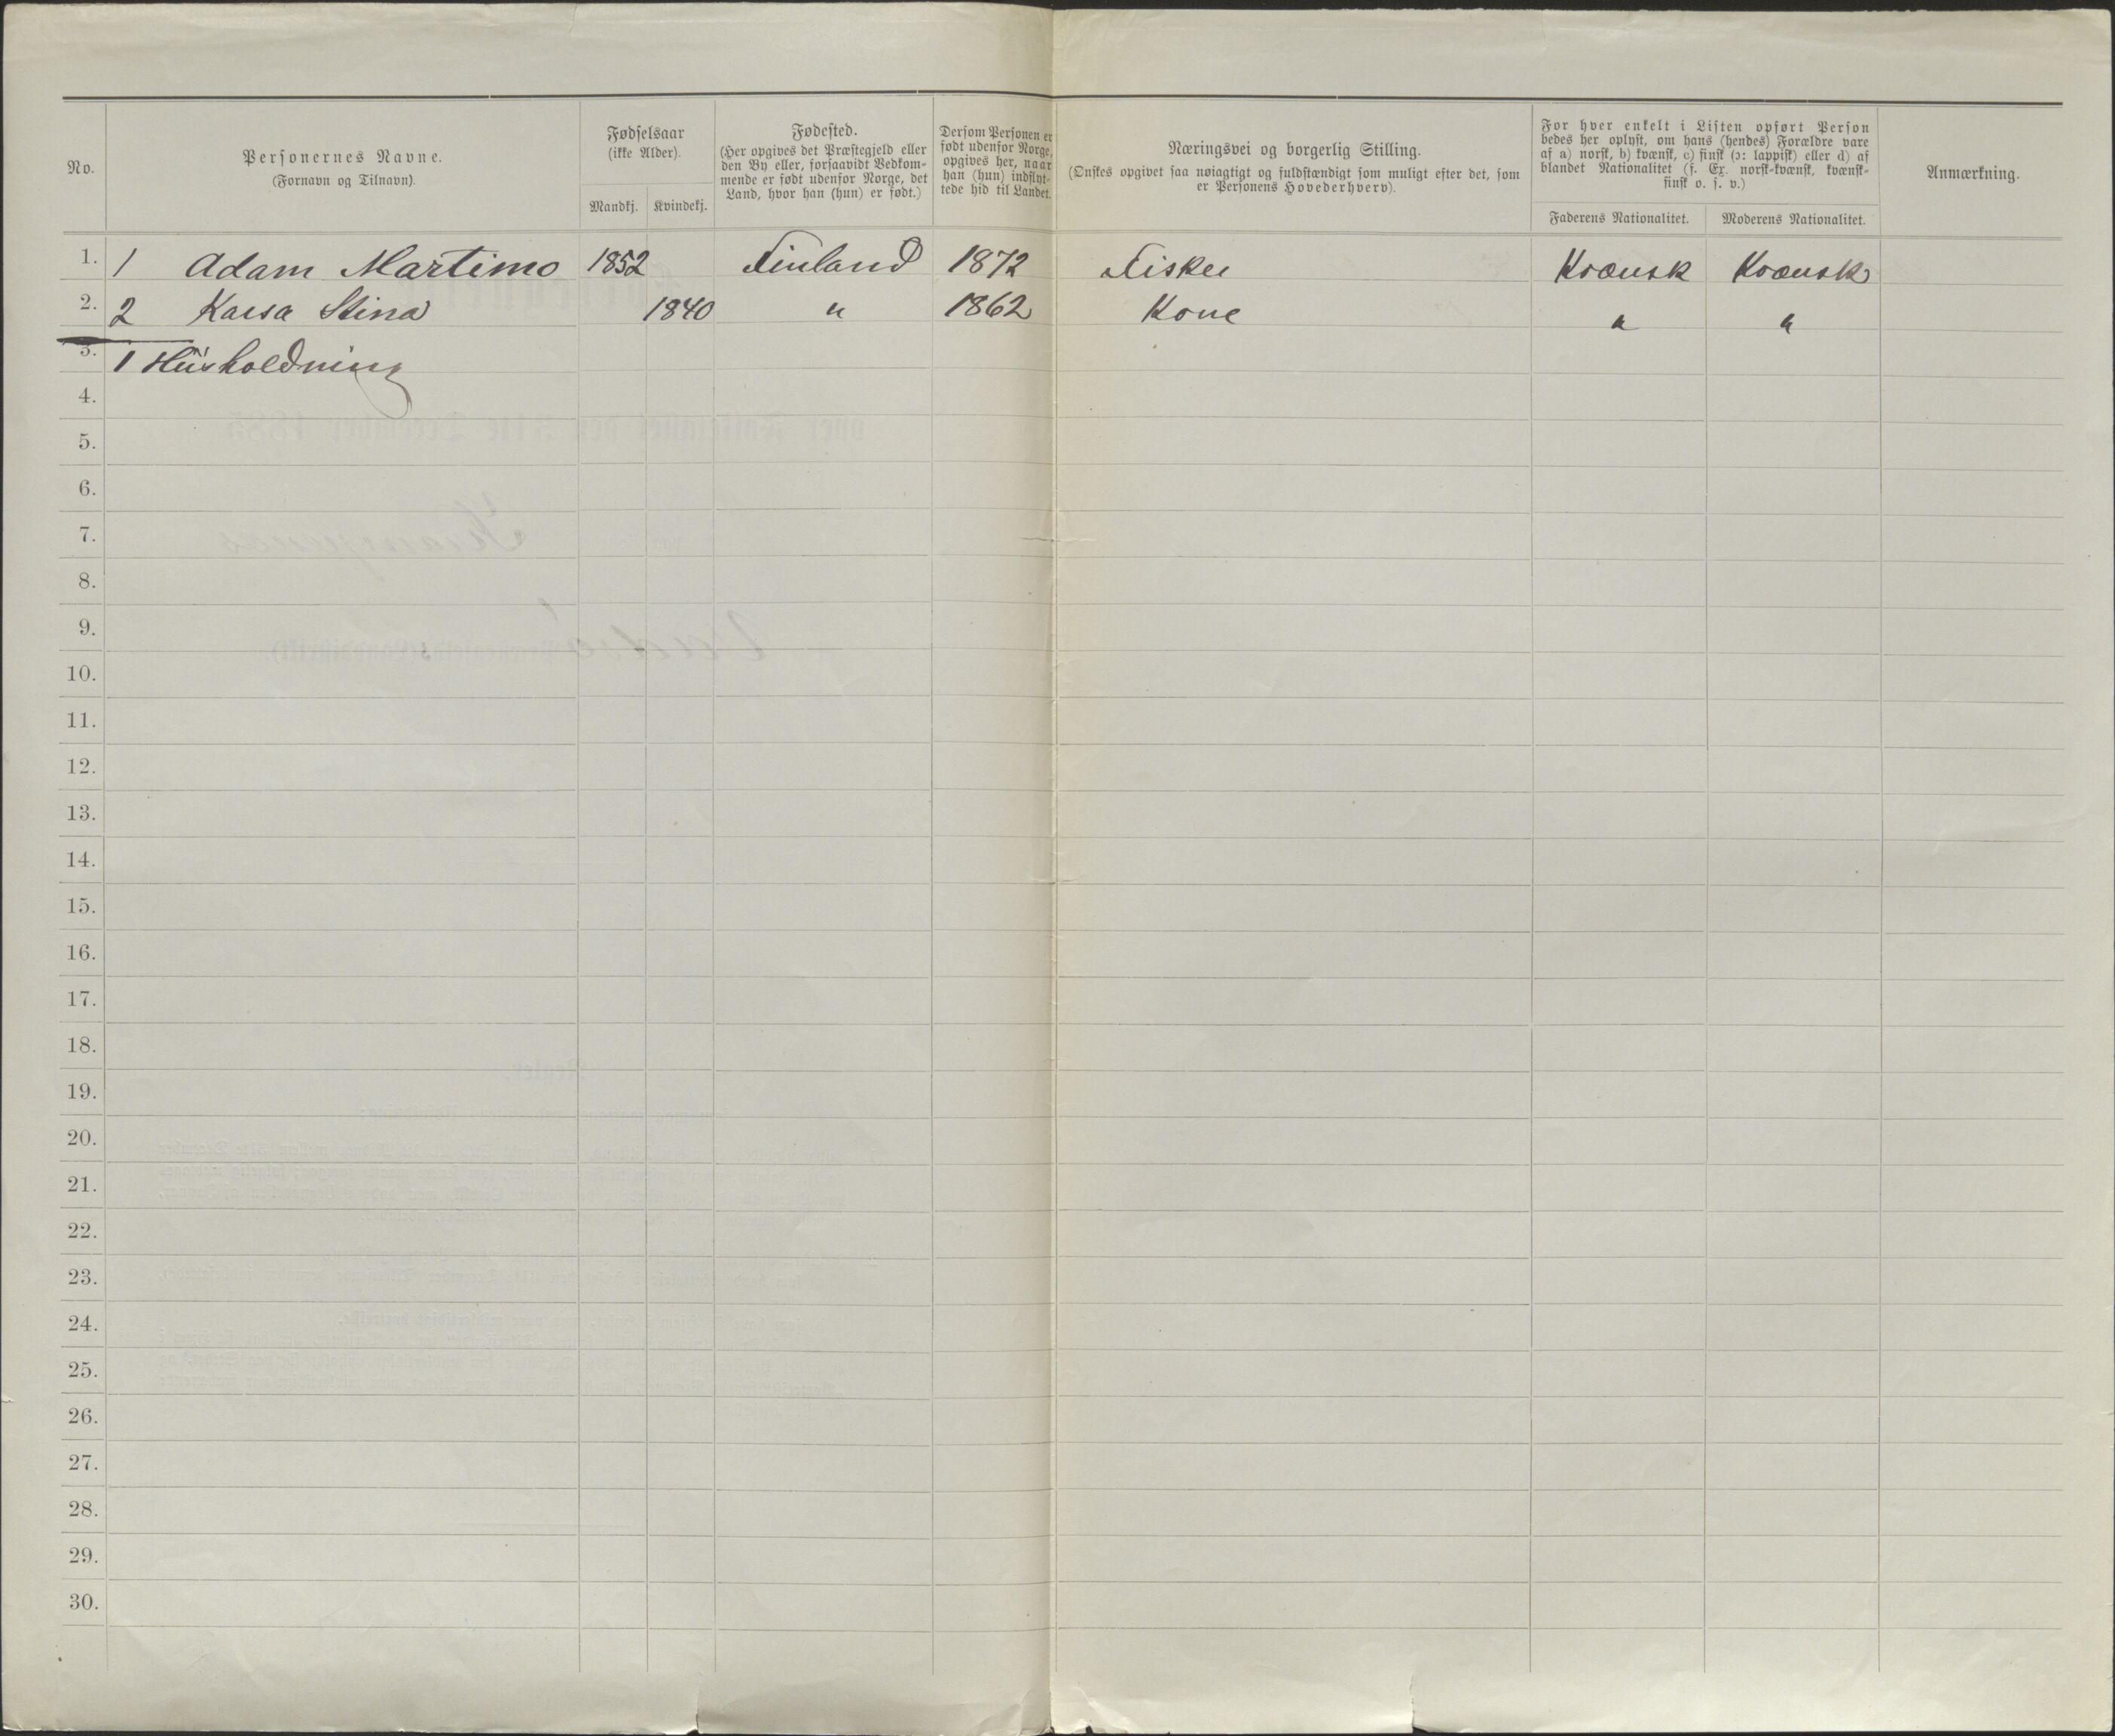 No.
Personernes Navne.
(Fornavn og Tilnavn).
Fødselsaar
(ikke Alder).
Mandkj. Kvindekj.
Fødested.
(Her opgives det Præstegjeld eller
den By eller, forsaavidt Vedkom-
mende er født udenfor Norge, det
Land, hvor han (hun) er født.)
Dersom Personen er
født udenfor Norge,
opgives her, naar
han (hun) indflyt-
tede hid til Landet.
Næringsvei og borgerlig Stilling.
(Ønskes opgivet saa nøiagtigt og fuldstændigt som muligt efter det, som
er Personens Hovederhverv).
For hver enkelt i Listen opført Person
bedes her oplyst, om hans (hendes) Forældre vare
af a) norsk, b) kvænsk, c) finsk (ɔ: lappisk) eller d) af
blandet Nationalitet (f. Ex. norsk-kvænsk, kvænsk-
finsk o. s. v.)
Faderens Nationalitet. Moderens Nationalitet.
Anmærkning.
1. 1 Adam Martimo 1852 Finland 1872 Fisker Kvænsk Kvænsk
2. 2 Kaisa Stina 1840 " 1862 Kone " "
3. 1 Husholdning
4.
5.
6.
7.
8.
9.
10.
11.
12.
13.
14.
15.
16.
17.
18.
19.
20.
21.
22.
23.
24.
25.
26.
27.
28.
29.
30.